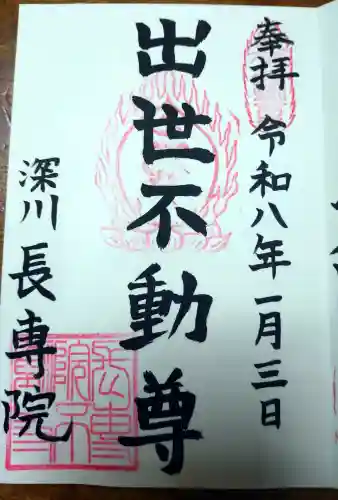 奉拝 令和八年一月三日
出世不動尊
深川 長専院